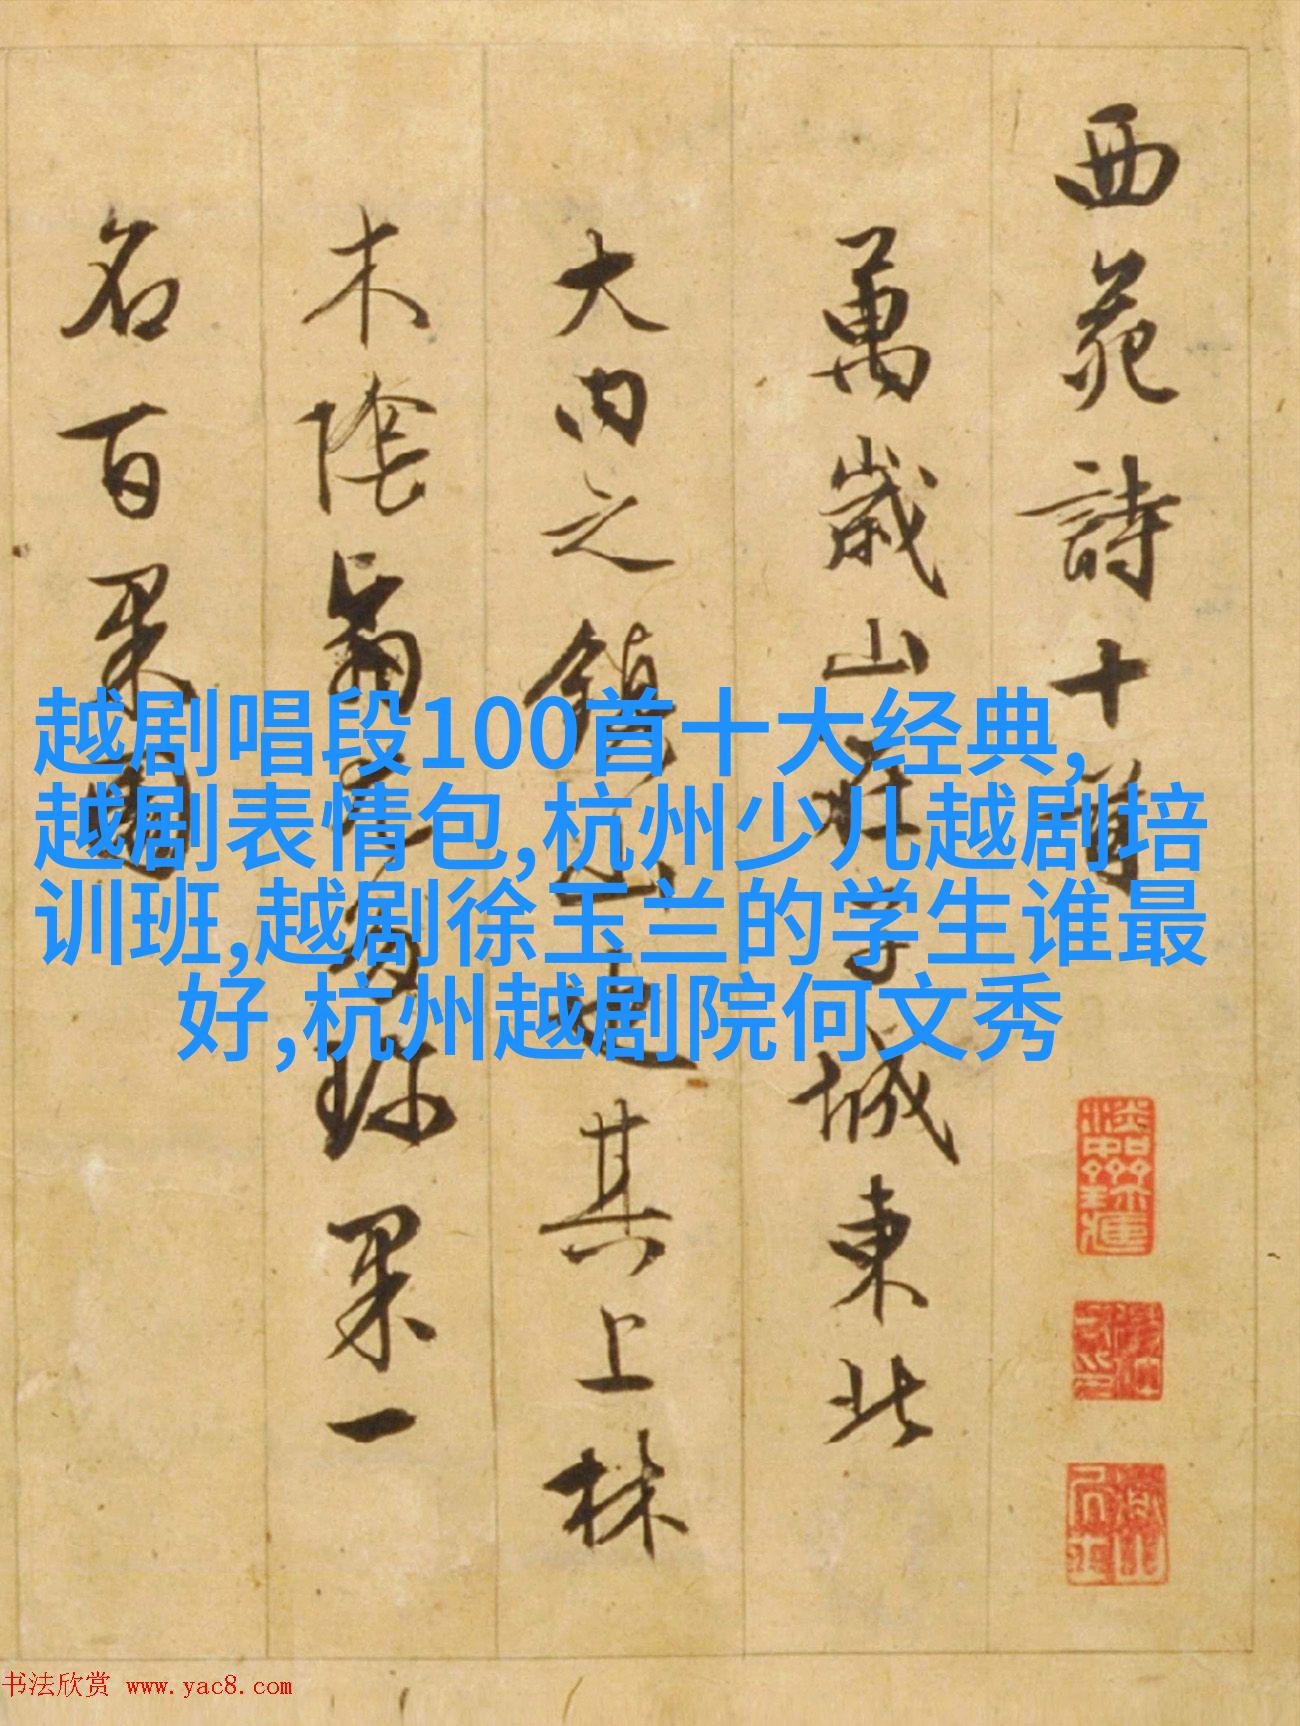 西苑詩十首
萬歲山在子城東北
大内之鎮山也其上林
木陰翳尤多珍果一
名百果園
越剧唱段100首十大经典,
越剧表情包,杭州少儿越剧培
训班,越剧徐玉兰的学生谁最
好,杭州越剧院何文秀
书法欣赏 www.yac8.com